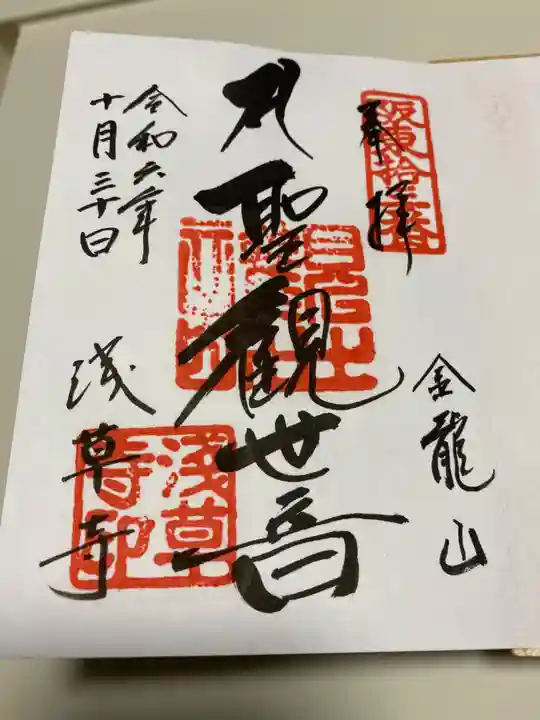 奉拝
坂東拾三番
金龍山
聖觀世音
淺草
寺印
浅草寺
令和六年
十月三十日